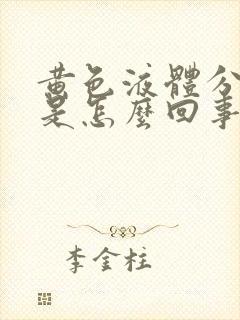 黃色液體分
是怎麼回事
李金柱